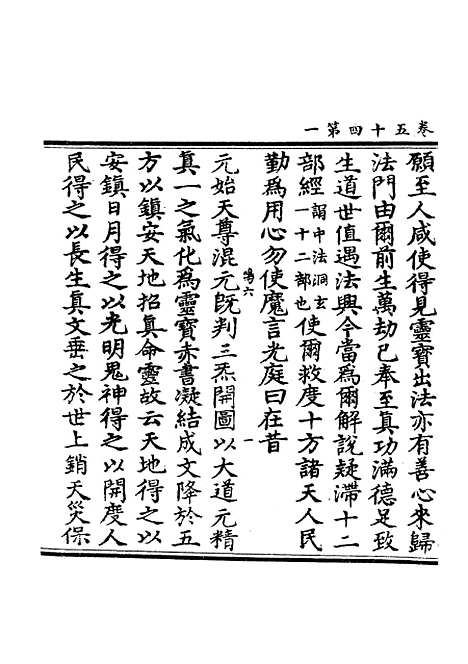 卷五十四第一
願至人咸使得見靈寶出法亦有善心來歸
法門由爾前生萬劫已奉至真功滿德足致
生道世值遇法興今當為爾解說疑滯十二
部經謂中法洞玄一十二部也使爾救度十方諸天人民
勤為用心勿使魔言光庭曰在昔
元始天尊混元既判三炁開圖以大道元精
真一之氣化為靈寶赤書凝結成文降於五
方以鎮安天地招真命靈故云天地得之以
安鎮日月得之以光明鬼神得之以開度人
民得之以長生真文垂之於世上銷天災保